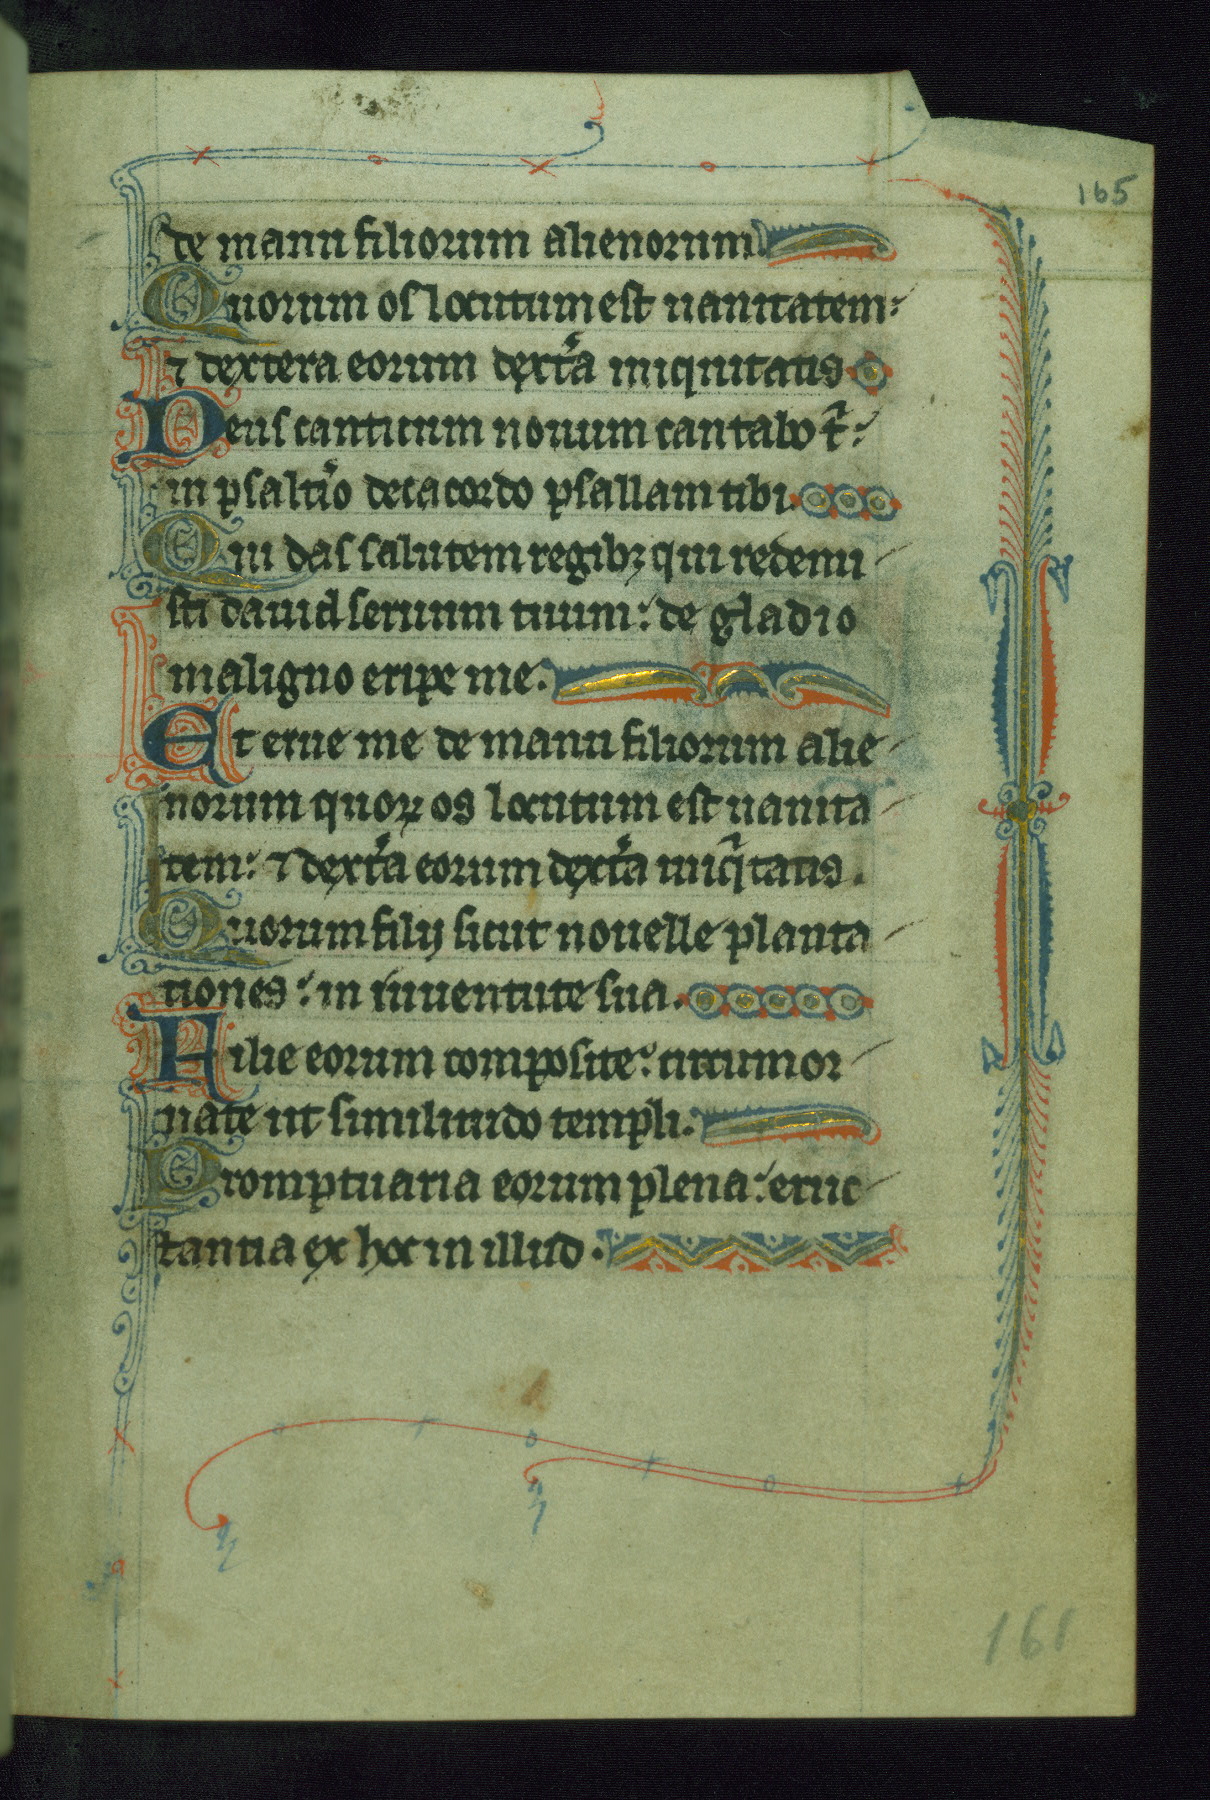 165
de manu filiorum alienorum
Quorum os locutum est uanitatem:
⁊ dextera eorum dext̾a iniquitatis
Deus canticum nouum cantabo t̄:
in psalt̾io decacordo psallam tibi.
Qui das salutem regibꝫ qui redemi
sti dauid seruum tuum: de gladio
maligno eripe me.
Et erue me de manu filiorum alie
norum quoꝝ os locutum est uanita
tem: ⁊ dext̾a eorum dext̾a iniq̄tatis.
Quorum filij sicut nouelle planta
tiones: in iuuentute sua.
Filie eorum composite: circumor
nate ut similitudo templi.
Promptuaria eorum plena: eruc
tantia ex hoc in illud.
161